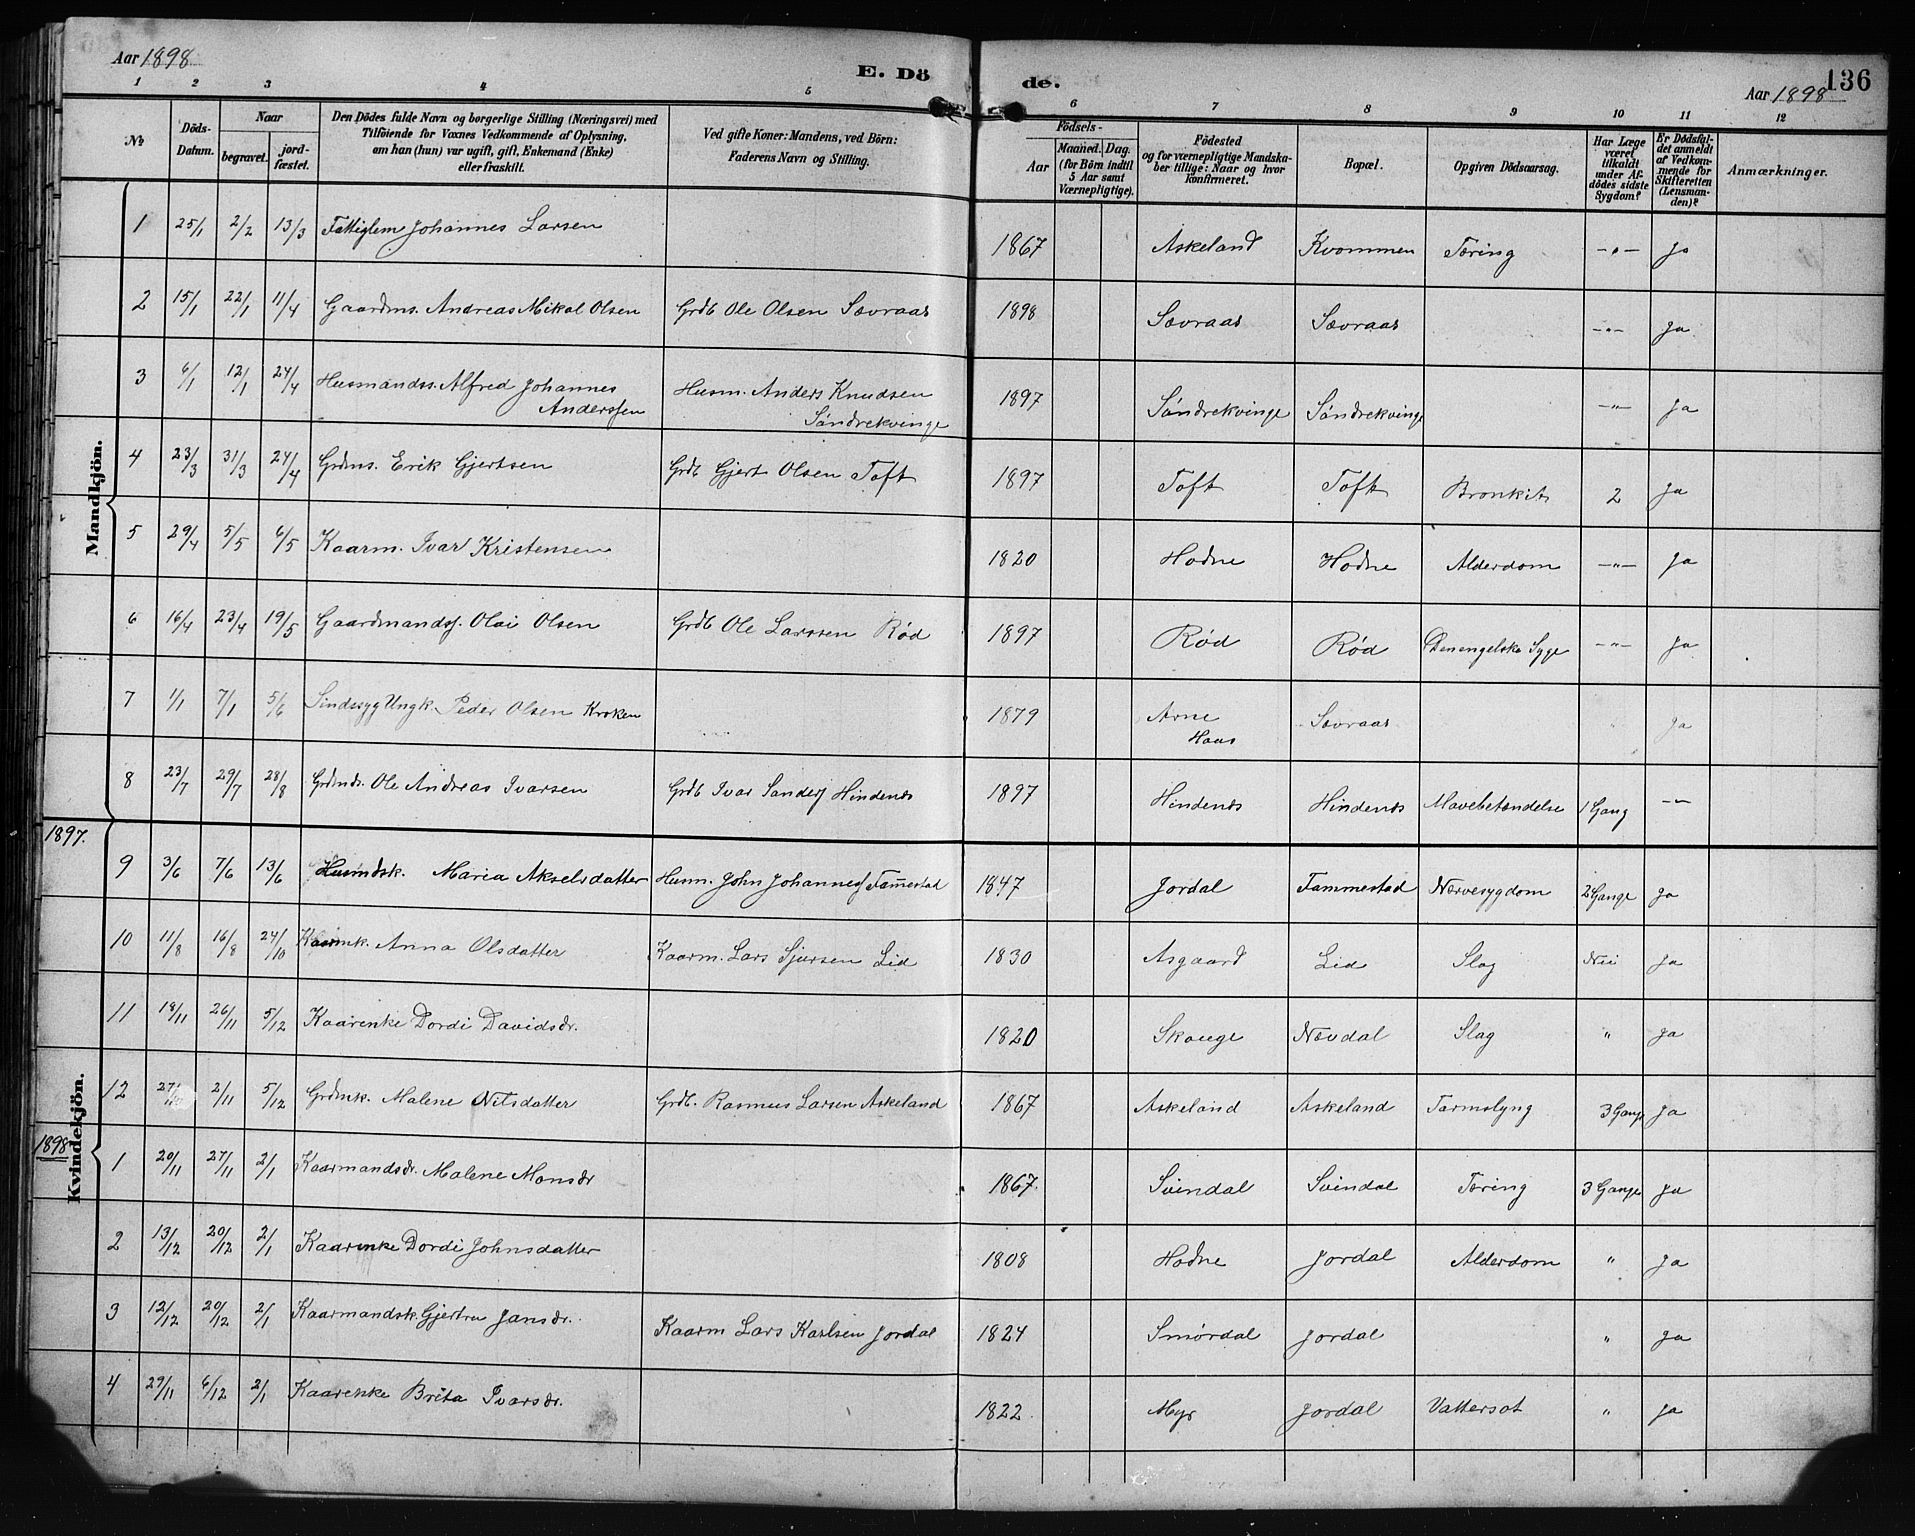 Aar 1898
E. Dö
de.
Aar 1898
136
1 2 3 4 5 6 7 8 9 10 11 12
No
Döds-Datum.
Naar
begravet.
jord-fæstet.
Den Dödes fulde Navn og borgerlige Stilling (Næringsvei) med
Tilföiende for Voxnes Vedkommende af Oplysning,
om han (hun) var ugift, gift, Enkemand (Enke)
eller fraskilt.
Ved gifte Koner: Mandens, ved Börn:
Faderens Navn og Stilling.
Födsels-
Aar
Maaned. Dag.
(for Börn indtil
5 Aar samt
Værnepligtige).
Födested
og for værnepligtige Mandska-
ber tillige: Naar og hvor
konfirmeret.
Bopæl.
Opgiven Dödsaarsag.
Har Læge
været
tilkaldt
under Af-
dödes sidste
Sygdom?
Er Dödsfal-
det anmeldt
af Vedkom-
mende for
Skifteretten
(Lensman-
den)?
Anmærkninger.
Mandkjön.
1 25/1 2/2 13/3 Fattiglem Johannes Larsen 1867 Askeland Kvommen Tæring -"- Ja
2 15/1 22/1 11/4 Gaardms. Andreas Mikal Olsen Grdb Ole Olsen Sævraas 1898 Sævraas Sævraas -"- Ja
3 6/1 12/1 24/4 Husmandss. Alfred Johannes Husm. Anders Knudsen 1897 Søndrekvinge Søndrekvinge -"- Ja
Anderssen Søndrekvinge
4 23/3 31/3 24/4 Grdms. Erik Gjertsen Grdb Gjert Olsen Toft 1897 Toft Toft Bronkit 2 Ja
5 29/4 5/5 6/5 Kaarm. Ivar Kristensen 1820 Hodne Hodne Alderdom -"- Ja
6 16/4 23/4 19/5 Gaardmands. Olai Olsen Grdb Ole Larssen Rød 1897 Rød Rød Den engelske Syge -"- Ja
7 1/1 7/1 5/6 Sindssyg Ungk. Peder Olsen Kroken 1879 Arne Sævraas " Ja
Haus
8 23/7 29/7 28/8 Grdmds. Ole Andreas Ivarsen Grdb Ivar Sanders Hindenes 1897 Hindenes Hindenes Mavebetændelse 1 Gang -"-
1897.
9 3/6 7/6 13/6 Husmdsk. Maria Akselsdatter Husm. John Johannes Fammestad 1847 Jordal Fammestad Nærvesygdom 2 Gange Ja
10 11/8 16/8 24/10 Kaarmk. Anna Olsdatter Kaarm. Lars Sjursen Lid 1830 Asgaard Lid Slag Nei Ja
11 19/11 26/11 5/12 Kaarenke Dordi Davidsdr. 1820 Skauge Nævdal Slag " Ja
Kvindekjön.
12 27/10 2/11 5/12 Grdmk. Malene Nilsdatter Grdb. Rasmus Larsen Askeland 1867 Askeland Askeland Tarmslyng 3 Gange Ja
1898
1 20/11 27/11 2/1 Kaarmandsdr. Malene Monsdr 1867. Svindal Svindal Tæring 3 Gange Ja
2 13/12 20/12 2/1 Kaarenke Dordi Johnsdatter 1808 Hodne Jordal Alderdom " Ja
3 12/12 20/12 2/1 Kaarmandsk. Gjertru Jansdr. Kaarm Lars Karlsen Jordal 1824 Smørdal Jordal " Ja
4 29/11 6/12 2/1 Kaarenke Brita Ivarsdr. 1822. Myr Jordal Vattersot " Ja